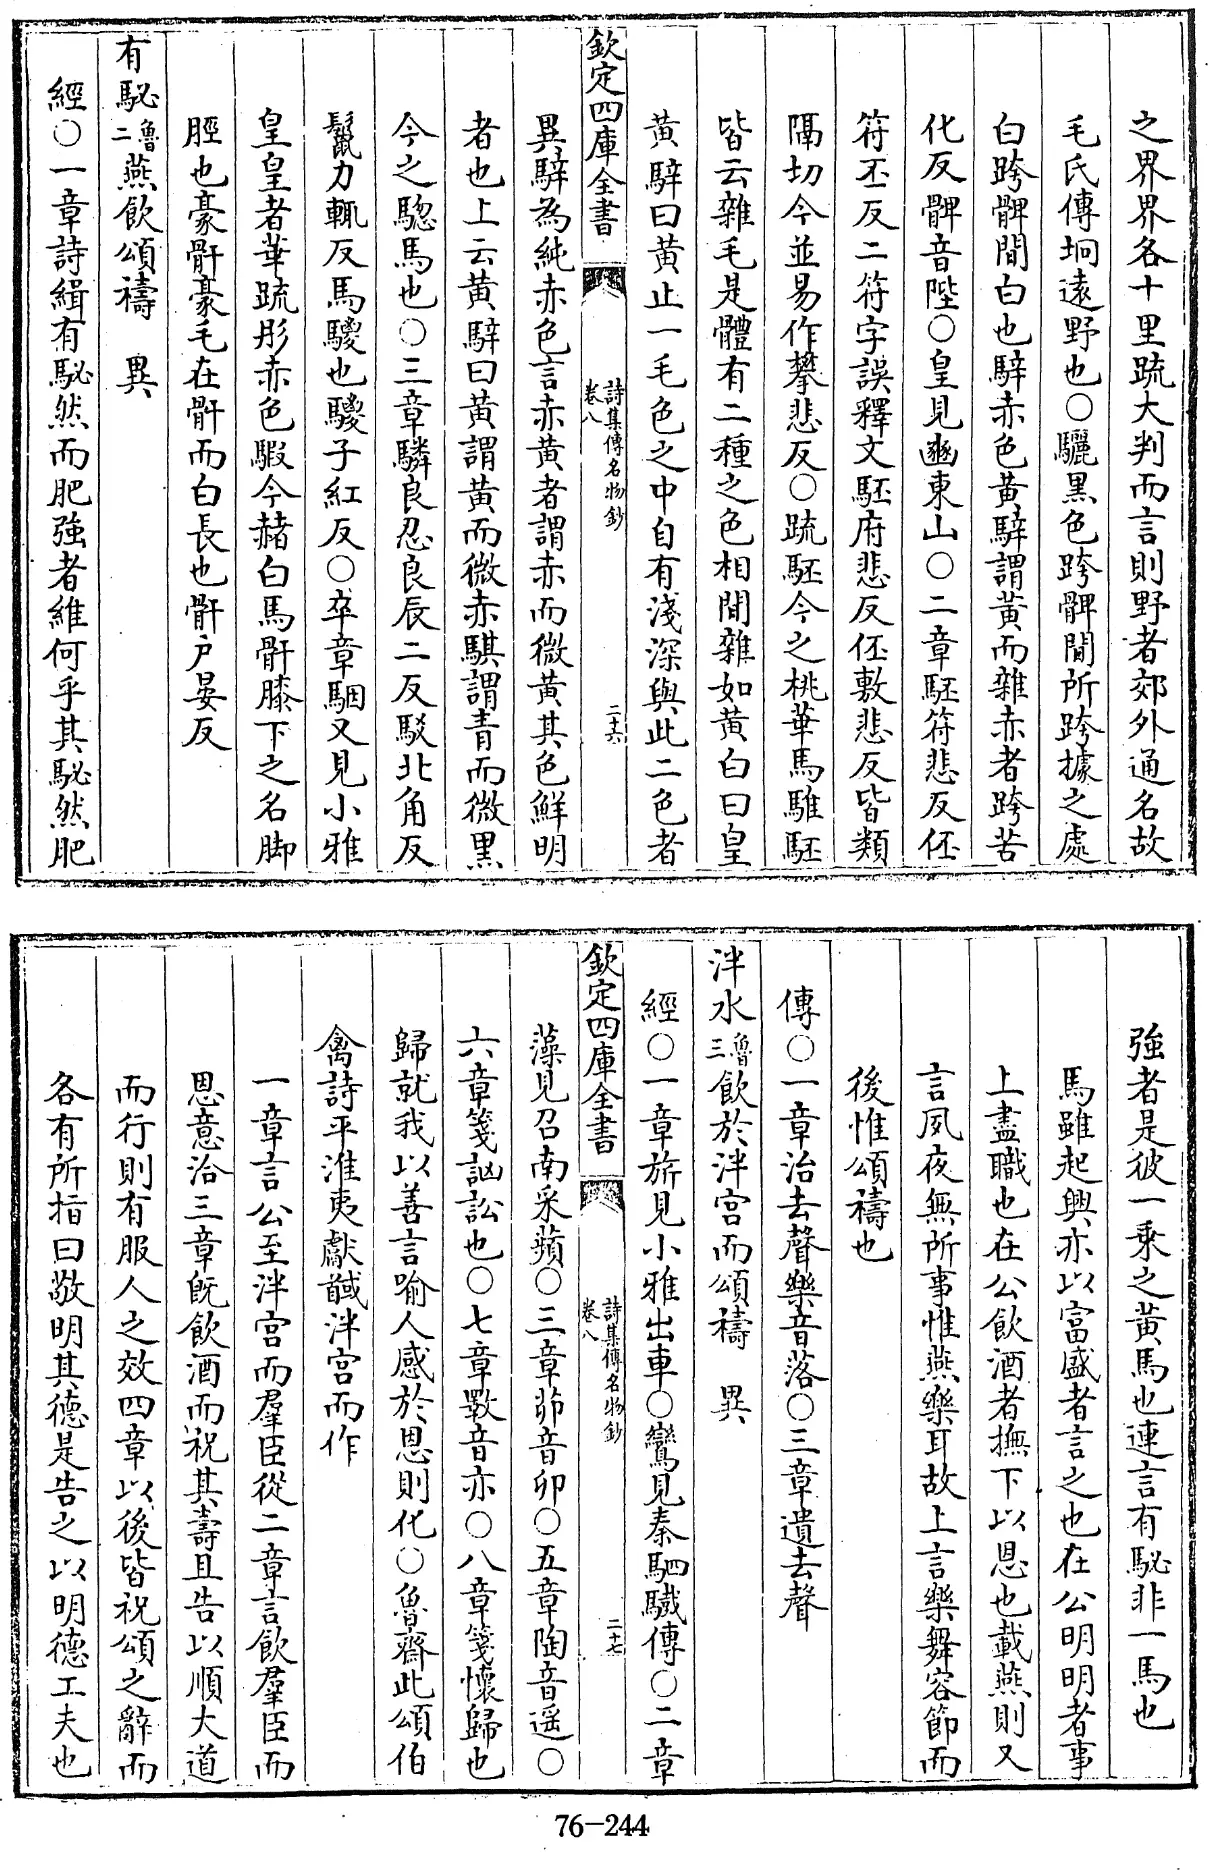 之界界各十里疏大判而言則野者郊外通名故
毛氏傳坰遠野也○驪黑色跨髀間所跨據之處
白跨髀間白也騂赤色黃騂謂黃而雜赤者跨苦
化反髀音陛○皇見豳東山○二章駓符悲反伾
符丕反二符字誤釋文駓府悲反伾敷悲反皆類
隔切今並易作攀悲反○疏駓今之桃華馬騅駓
皆云雜毛是體有二種之色相間雜如黃白曰皇
黃騂曰黃止一毛色之中自有淺深與此二色者
欽定四庫全書
詩集傳名物鈔
卷八
二十六
異騂為純赤色言赤黃者謂赤而微黃其色鮮明
者也上云黃騂曰黃謂黃而微赤騏謂青而微黑
今之驄馬也○三章驎良忍良辰二反駁北角反
鬣力輒反馬騣也騣子紅反○卒章駰又見小雅
皇皇者華疏彤赤色騢今赭白馬骭膝下之名脚
脛也豪骭豪毛在骭而白長也骭戶晏反
有駜魯二燕飲頌禱 異
經○一章詩緝有駜然而肥強者維何乎其駜然肥
強者是彼一乘之黃馬也連言有駜非一馬也
馬雖起興亦以富盛者言之也在公明明者事
上盡職也在公飲酒者撫下以恩也載燕則又
言夙夜無所事惟燕樂耳故上言樂舞容節而
後惟頌禱也
傳○一章治去聲樂音落○三章遺去聲
泮水魯三飲於泮宮而頌禱 異
經○一章旂見小雅出車○鸞見秦駟驖傳○二章
欽定四庫全書
詩集傳名物鈔
卷八
二十七
藻見召南采蘋○三章茆音卯○五章陶音遥○
六章箋訩訟也○七章斁音亦○八章箋懷歸也
歸就我以善言喻人感於恩則化○魯齋此頌伯
禽詩平淮夷獻馘泮宮而作
一章言公至泮宮而羣臣從二章言飲羣臣而
恩意洽三章旣飲酒而祝其壽且告以順大道
而行則有服人之效四章以後皆祝頌之辭而
各有所指曰敬明其德是告之以明德工夫也
76-244